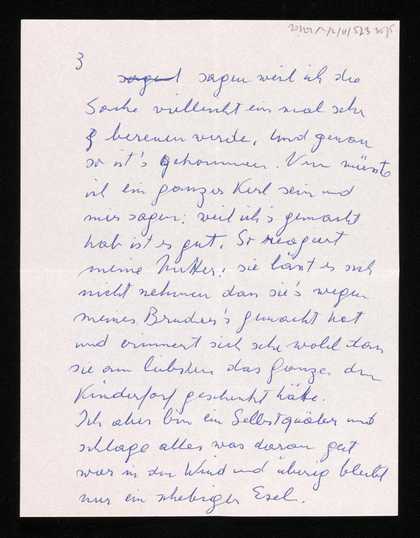 3
sagen weil ich die
Sache vielleicht ein mal sehr
bereuen werde. Und genau
so ist's gekommen. Nun müsste
ich ein ganzer Kerl sein und
mir sagen: weil ich's gemacht
hab ist es gut. So reagiert
meine Mutter: sie lässt es sich
nicht nehmen dass sie's wegen
meines Bruder's gemacht hat
und erinnert sich sehr wohl dass
sie am liebsten das Ganze dem
Kinderdorf geschenkt hätte.
Ich aber bin ein Selbstquäler und
schlage alles was daran gut
war in den Wind und übrig bleibt
nur ein schebiger Esel.